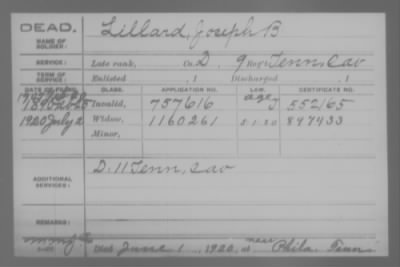 DEAD.
NAME OF SOLDIER: Lillard, Joseph B
SERVICE: Late rank, Co. D, 9 Reg't Tenn Cav
TERM OF SERVICE: Enlisted , 1 Discharged , 1
DATE OF FILING. CLASS. APPLICATION NO. LAW. CERTIFICATE NO.
Invalid, 757616 age J 552165
1920 July 2 Widow, 1160261 5.1.20 897433
Minor,
ADDITIONAL SERVICES: D. 11 Tenn, Cav
REMARKS:
Died June 1, 1920, at near Phila Tenn